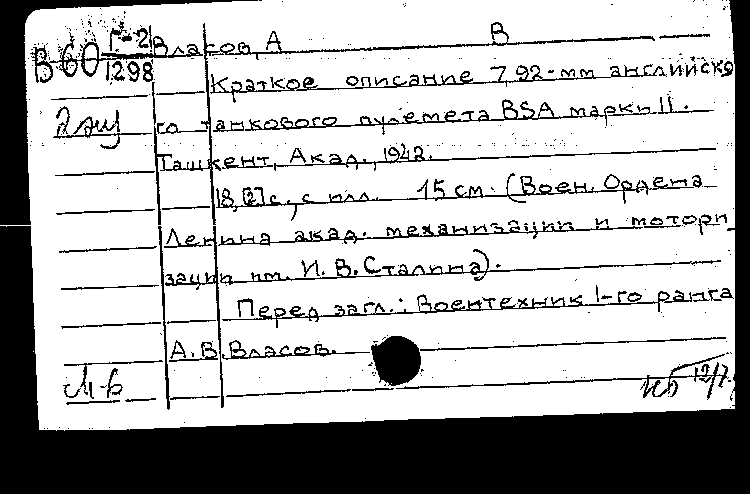 В 60 Г-2/1298 Власов, А В
Краткое описание 7,92-мм английско
2 экз го танкового пулемета BSA марки II.
Ташкент, Акад., 1942.
18, [2] с., с илл. 15 см. (Воен. Ордена
Ленина акад. механизации и мотори
зации им. И. В. Сталина).
Перед загл.: Воентехник I-го ранга
А. В. Власов.
М-в